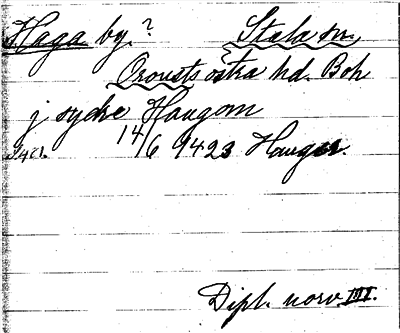 Haga by.? Stala sn.
Orousts östra hd. Boh
j sydre Haugom
14/6 1423 Hauger.
Dipl. norv. III.